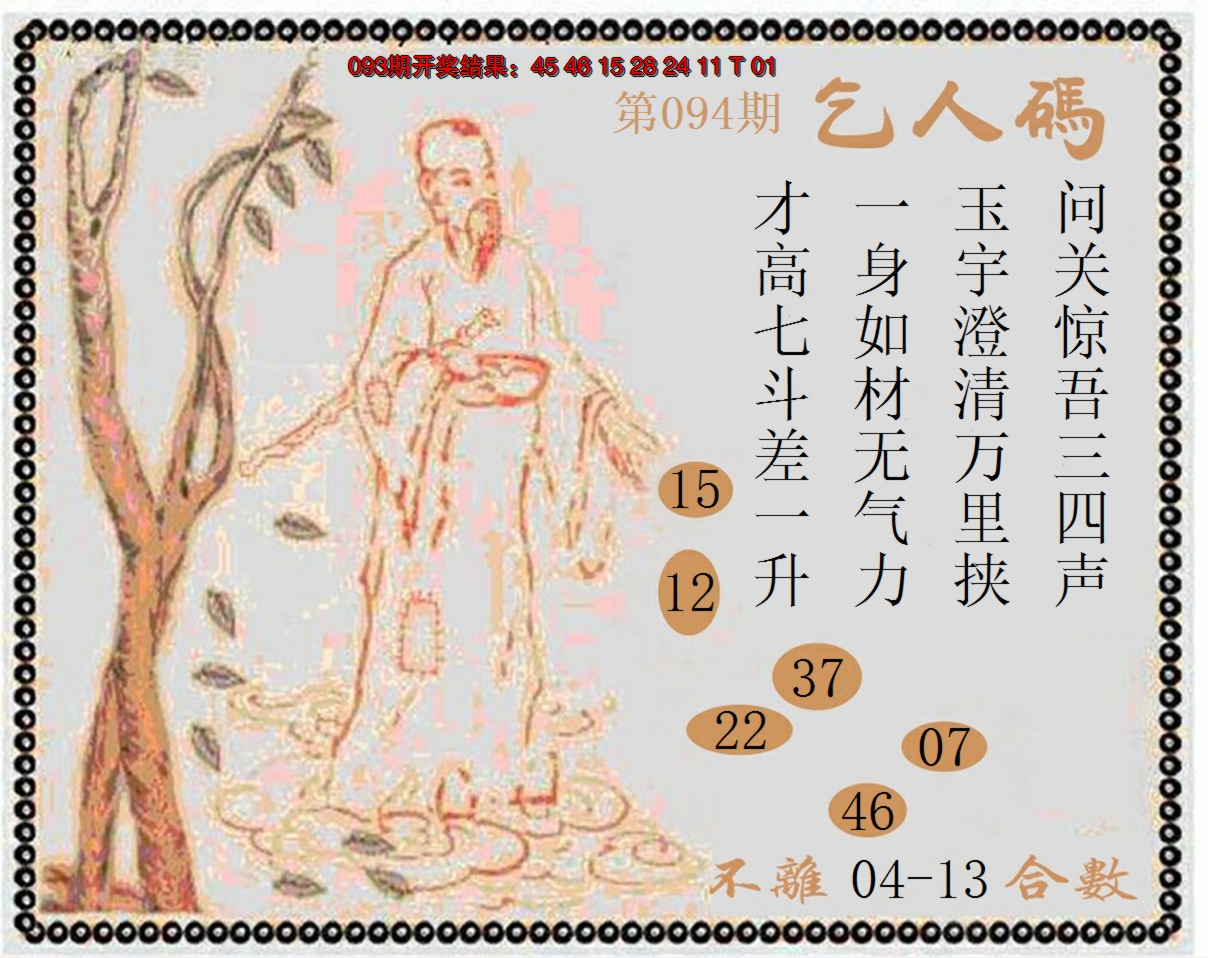 093期开奖结果：45 46 15 28 24 11 T 01
第094期
乞人碼
问关惊吾三四声
玉宇澄清万里挟
一身如材无气力
才高七斗差一升
15
12
37
22
07
46
不離 04-13 合數